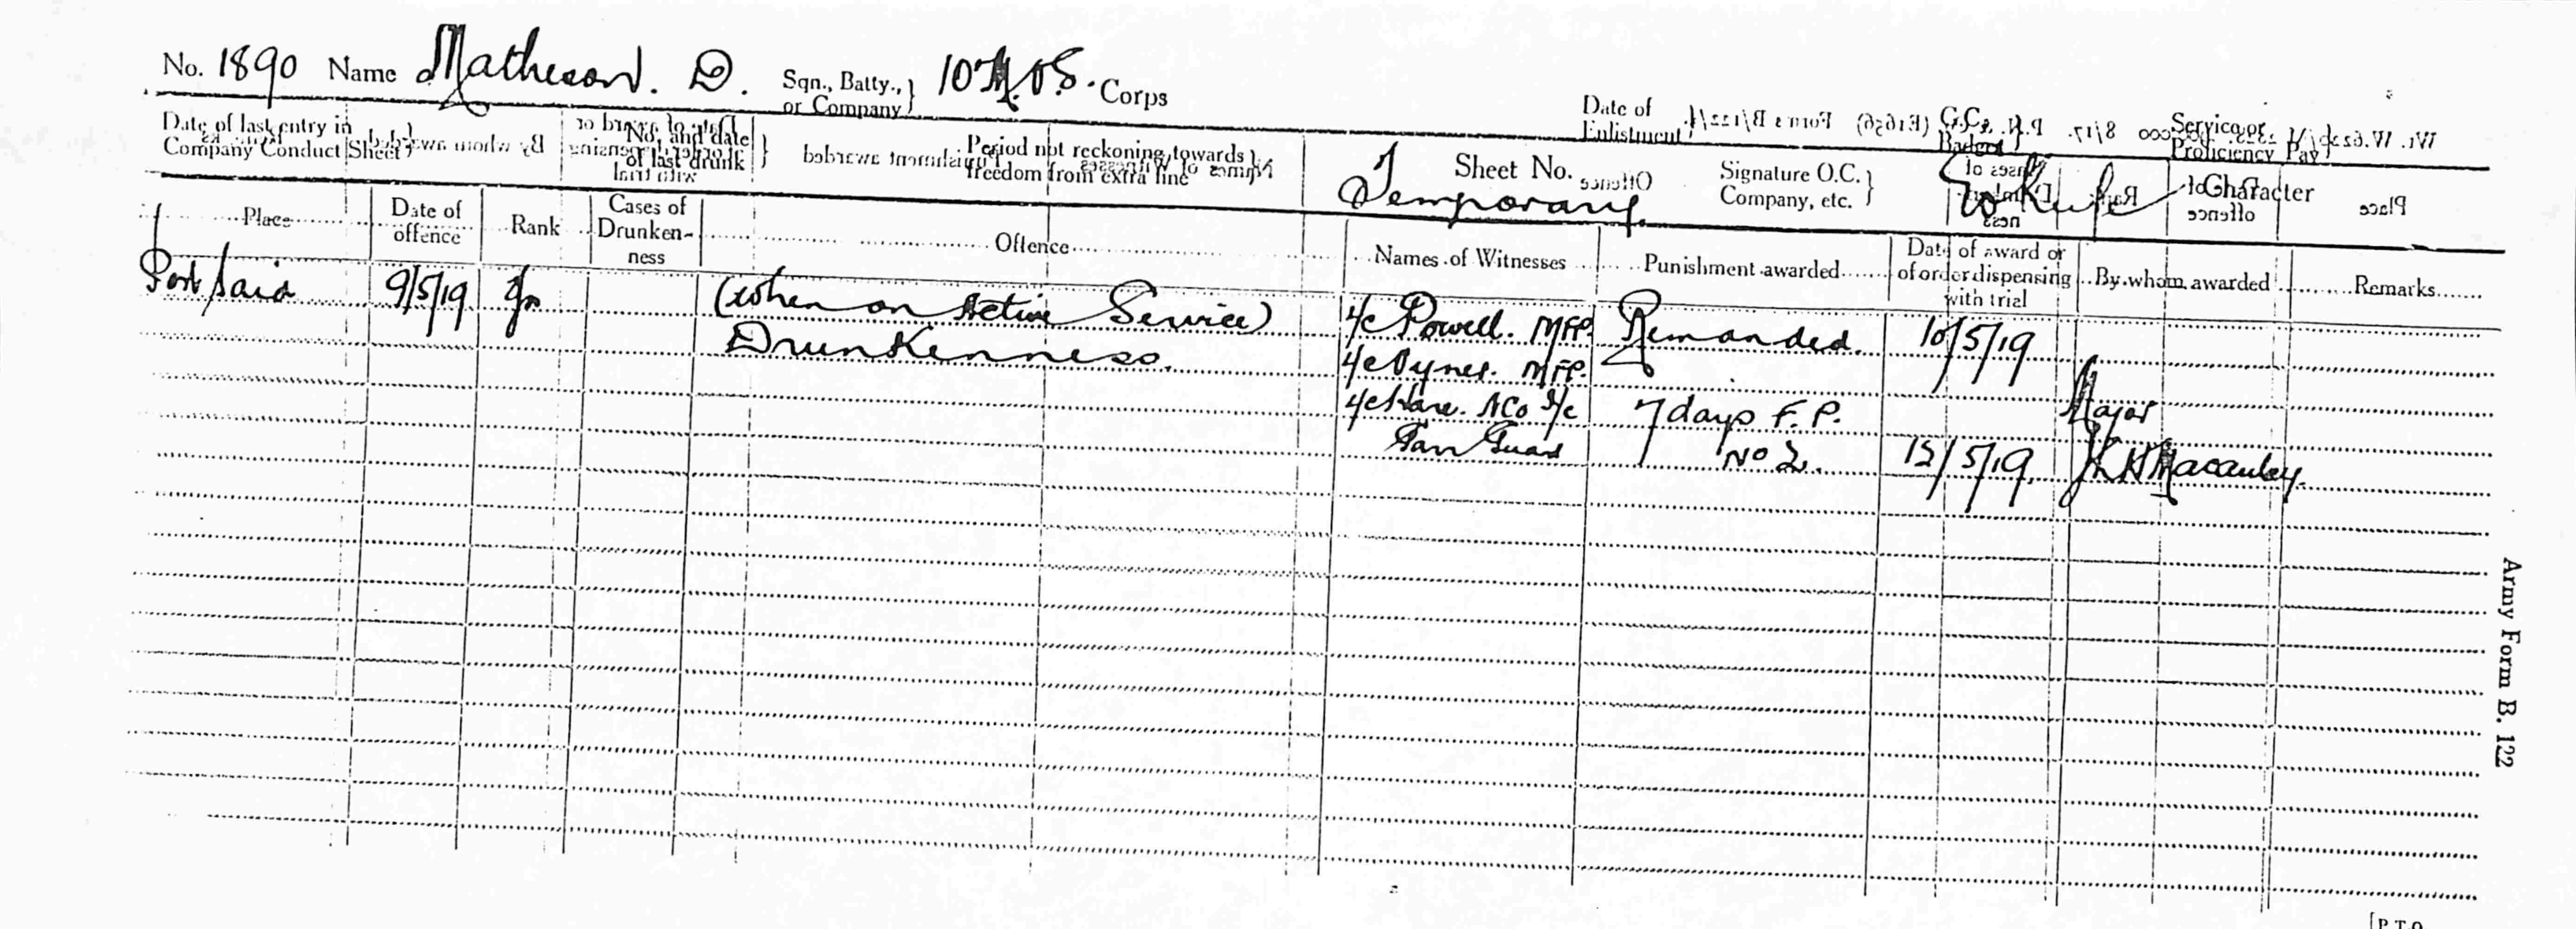 No. 1890 Name Matheson. D. Sqn., Batty., or Company} 10 M.G.S. Corps
Date of Enlistment} G.C. Badges} Service or Proficiency Pay}
Date of last entry in Company Conduct Sheet} No. and date of last drunk} Period not reckoning towards freedom from extra fine}
Sheet No. Temporary Signature O.C. Company, etc.} Character
Place Date of offence Rank Cases of Drunken-ness Offence Names of Witnesses Punishment awarded Date of award or of order dispensing with trial By whom awarded Remarks
Port Said 9/5/19 (When on Active Service) Powell. MFP. Remanded. 10/5/19
Drunkenness. MFP.
NCO I/c 7 days F. P. Major
Guard No 2. 12/5/19 Macauley.
Army Form B. 122
[P.T.O.